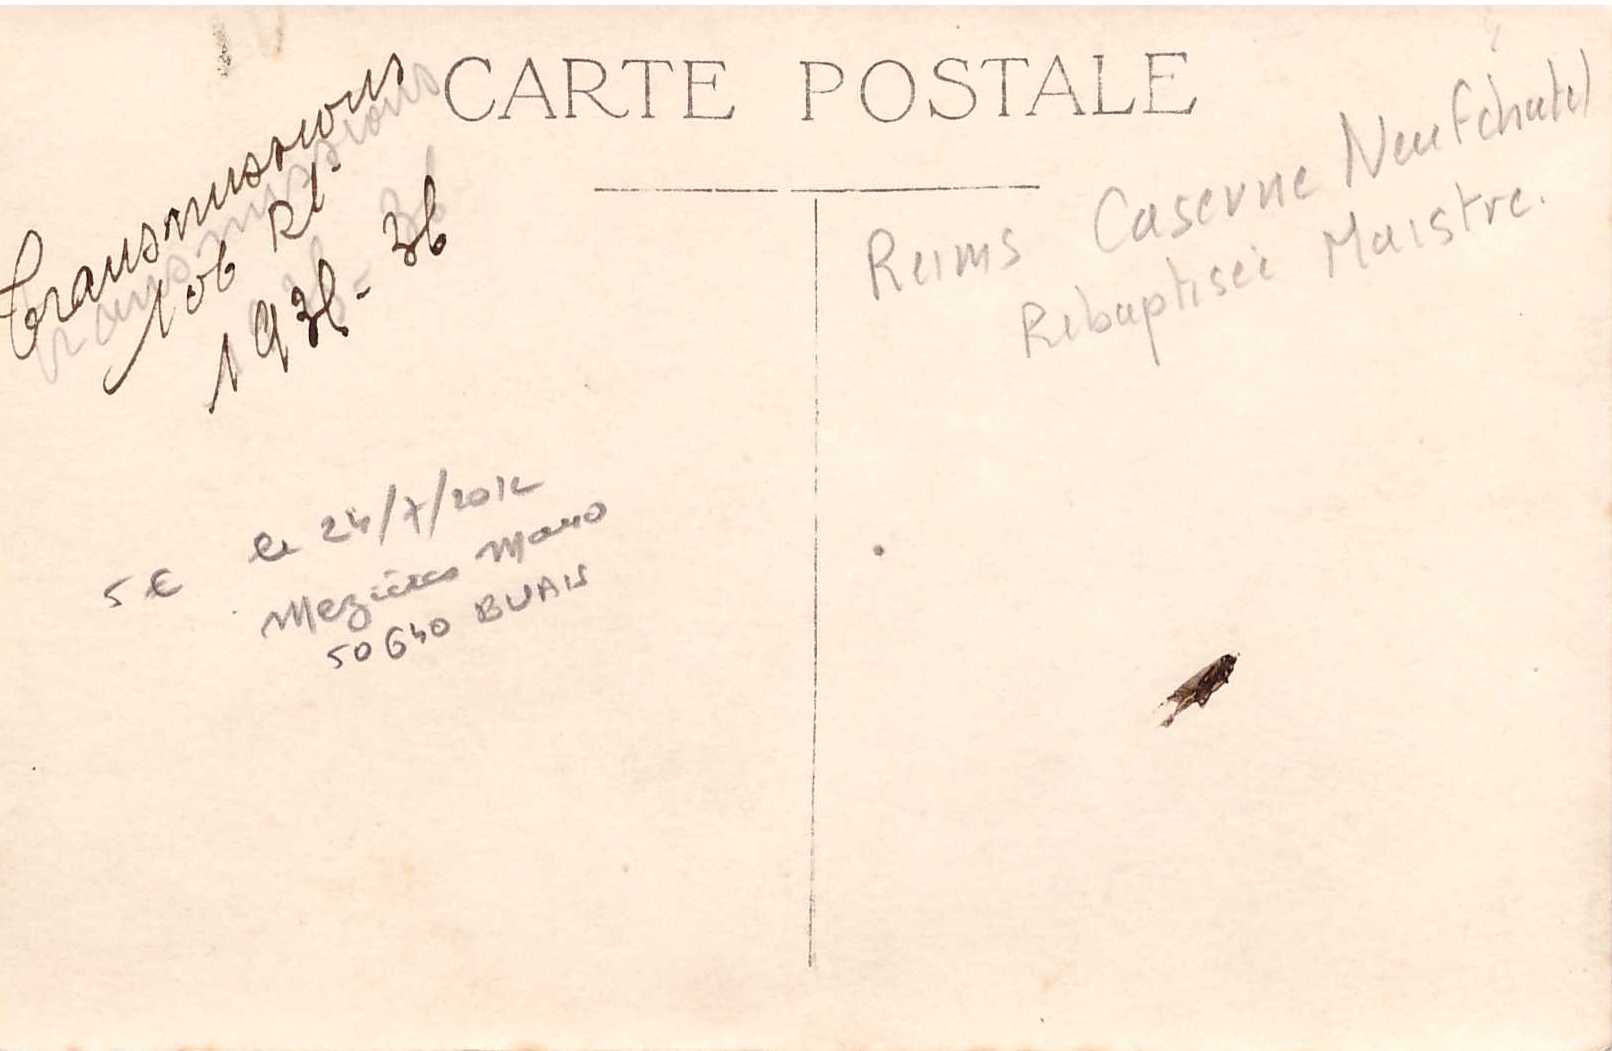 CARTE POSTALE
Transmissions
106 RI
1935-36
Reims Caserne Neufchatel
Rebaptisée Maistre.
5 € le 24/7/2012
Mezières
50640 BUAIS